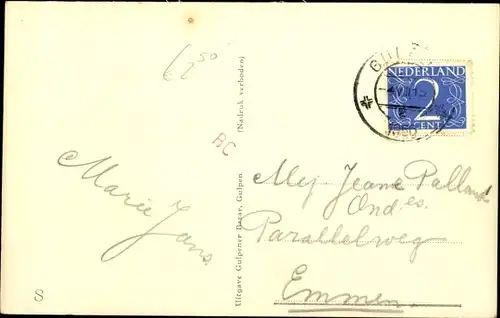 62⁵⁰
RC
Marie Jans.
8
Uitgave Gulpener Bazar, Gulpen (Nadruk verboden)
GUL
NEDERLAND
2
CENT
1950
Mej Jeane Pallands
Ond es.
Parallelweg
Emmen.